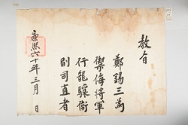 教旨
鄭錫三為
禦侮將軍
行龍驤衛
副司直者
康熙六十年三月　日